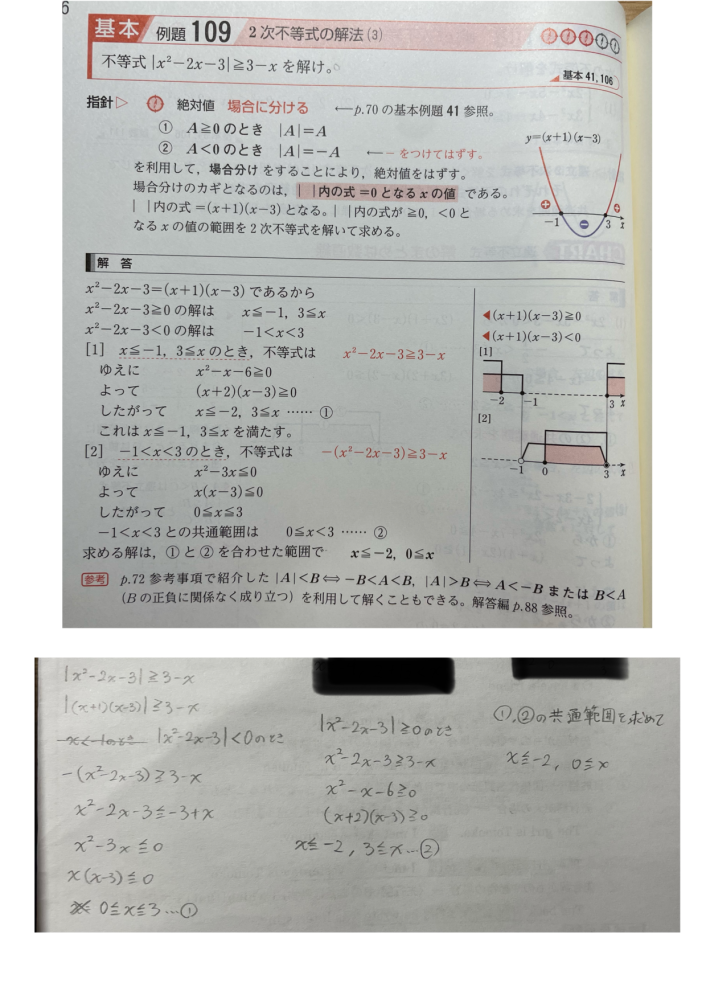 6
基本 例題 109 2次不等式の解法(3)
不等式 |x²−2x−3|≧3−x を解け。
基本 41, 106
指針▷ 絶対値 場合に分ける ←p.70 の基本例題 41 参照。
① A≧0 のとき |A|=A
② A<0 のとき |A|=−A ←−をつけてはずす。
を利用して，場合分けをすることにより，絶対値をはずす。
場合分けのカギとなるのは，| |内の式=0 となる x の値 である。
| |内の式=(x+1)(x−3) となる。| |内の式が ≧0，<0 と
なる x の値の範囲を2次不等式を解いて求める。
y=(x+1)(x−3)
+ +
−1 − 3 x
解答
x²−2x−3=(x+1)(x−3) であるから
x²−2x−3≧0 の解は x≦−1, 3≦x
x²−2x−3<0 の解は −1<x<3
[1] x≦−1, 3≦x のとき，不等式は x²−2x−3≧3−x
ゆえに x²−x−6≧0
よって (x+2)(x−3)≧0
したがって x≦−2, 3≦x …… ①
これは x≦−1, 3≦x を満たす。
[2] −1<x<3 のとき，不等式は −(x²−2x−3)≧3−x
ゆえに x²−3x≦0
よって x(x−3)≦0
したがって 0≦x≦3
−1<x<3 との共通範囲は 0≦x<3 …… ②
求める解は，①と②を合わせた範囲で x≦−2, 0≦x
◀(x+1)(x−3)≧0
◀(x+1)(x−3)<0
[1]
−2 −1 3 x
[2]
−1 0 3 x
参考 p.72 参考事項で紹介した |A|<B⟺−B<A<B, |A|>B⟺A<−B または B<A
(B の正負に関係なく成り立つ) を利用して解くこともできる。解答編 p.88 参照。
|x²−2x−3|≧3−x
|(x+1)(x−3)|≧3−x
x<−1のとき |x²−2x−3|<0のとき
−(x²−2x−3)≧3−x
x²−2x−3≦−3+x
x²−3x≦0
x(x−3)≦0
0≦x≦3…①
|x²−2x−3|≧0のとき
x²−2x−3≧3−x
x²−x−6≧0
(x+2)(x−3)≧0
x≦−2, 3≦x…②
①,②の共通範囲を求めて
x≦−2, 0≦x